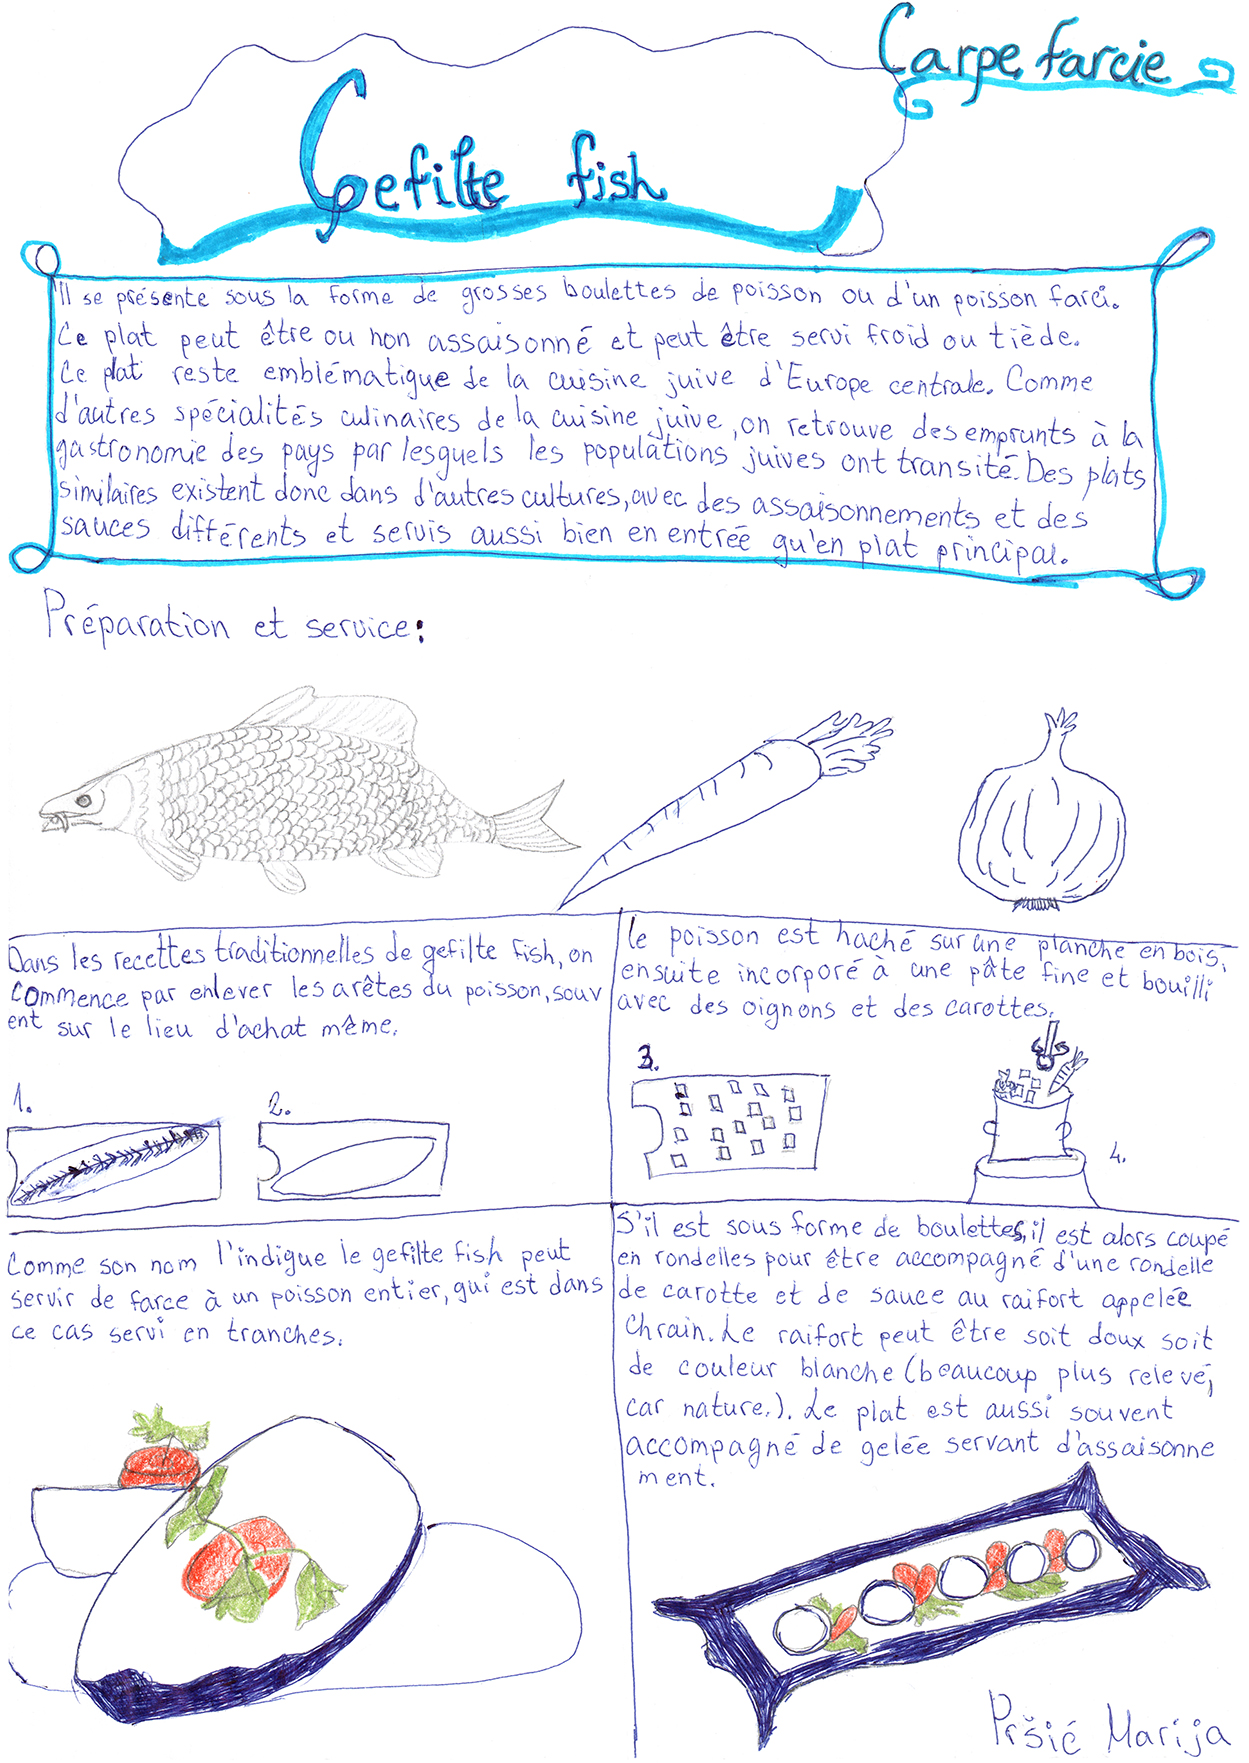 Carpe farcie
Gefilte fish
Il se présente sous la forme de grosses boulettes de poisson ou d'un poisson farci.
Ce plat peut être ou non assaisonné et peut être servi froid ou tiède.
Ce plat reste emblématique de la cuisine juive d'Europe centrale. Comme
d'autres spécialités culinaires de la cuisine juive, on retrouve des emprunts à la
gastronomie des pays par lesquels les populations juives ont transité. Des plats
similaires existent donc dans d'autres cultures, avec des assaisonnements et des
sauces différents et servis aussi bien en entrée qu'en plat principal.
Préparation et service:
Dans les recettes traditionnelles de gefilte fish, on
commence par enlever les arêtes du poisson, souv
ent sur le lieu d'achat même.
1.
2.
Le poisson est haché sur une planche en bois,
ensuite incorporé à une pâte fine et bouilli
avec des oignons et des carottes.
3.
4.
Comme son nom l'indique le gefilte fish peut
servir de farce à un poisson entier, qui est dans
ce cas servi en tranches.
S'il est sous forme de boulettes, il est alors coupé
en rondelles pour être accompagné d'une rondelle
de carotte et de sauce au raifort appelée
Chrain. Le raifort peut être soit doux soit
de couleur blanche (beaucoup plus relevé,
car nature.). Le plat est aussi souvent
accompagné de gelée servant d'assaisonne
ment.
Pršić Marija